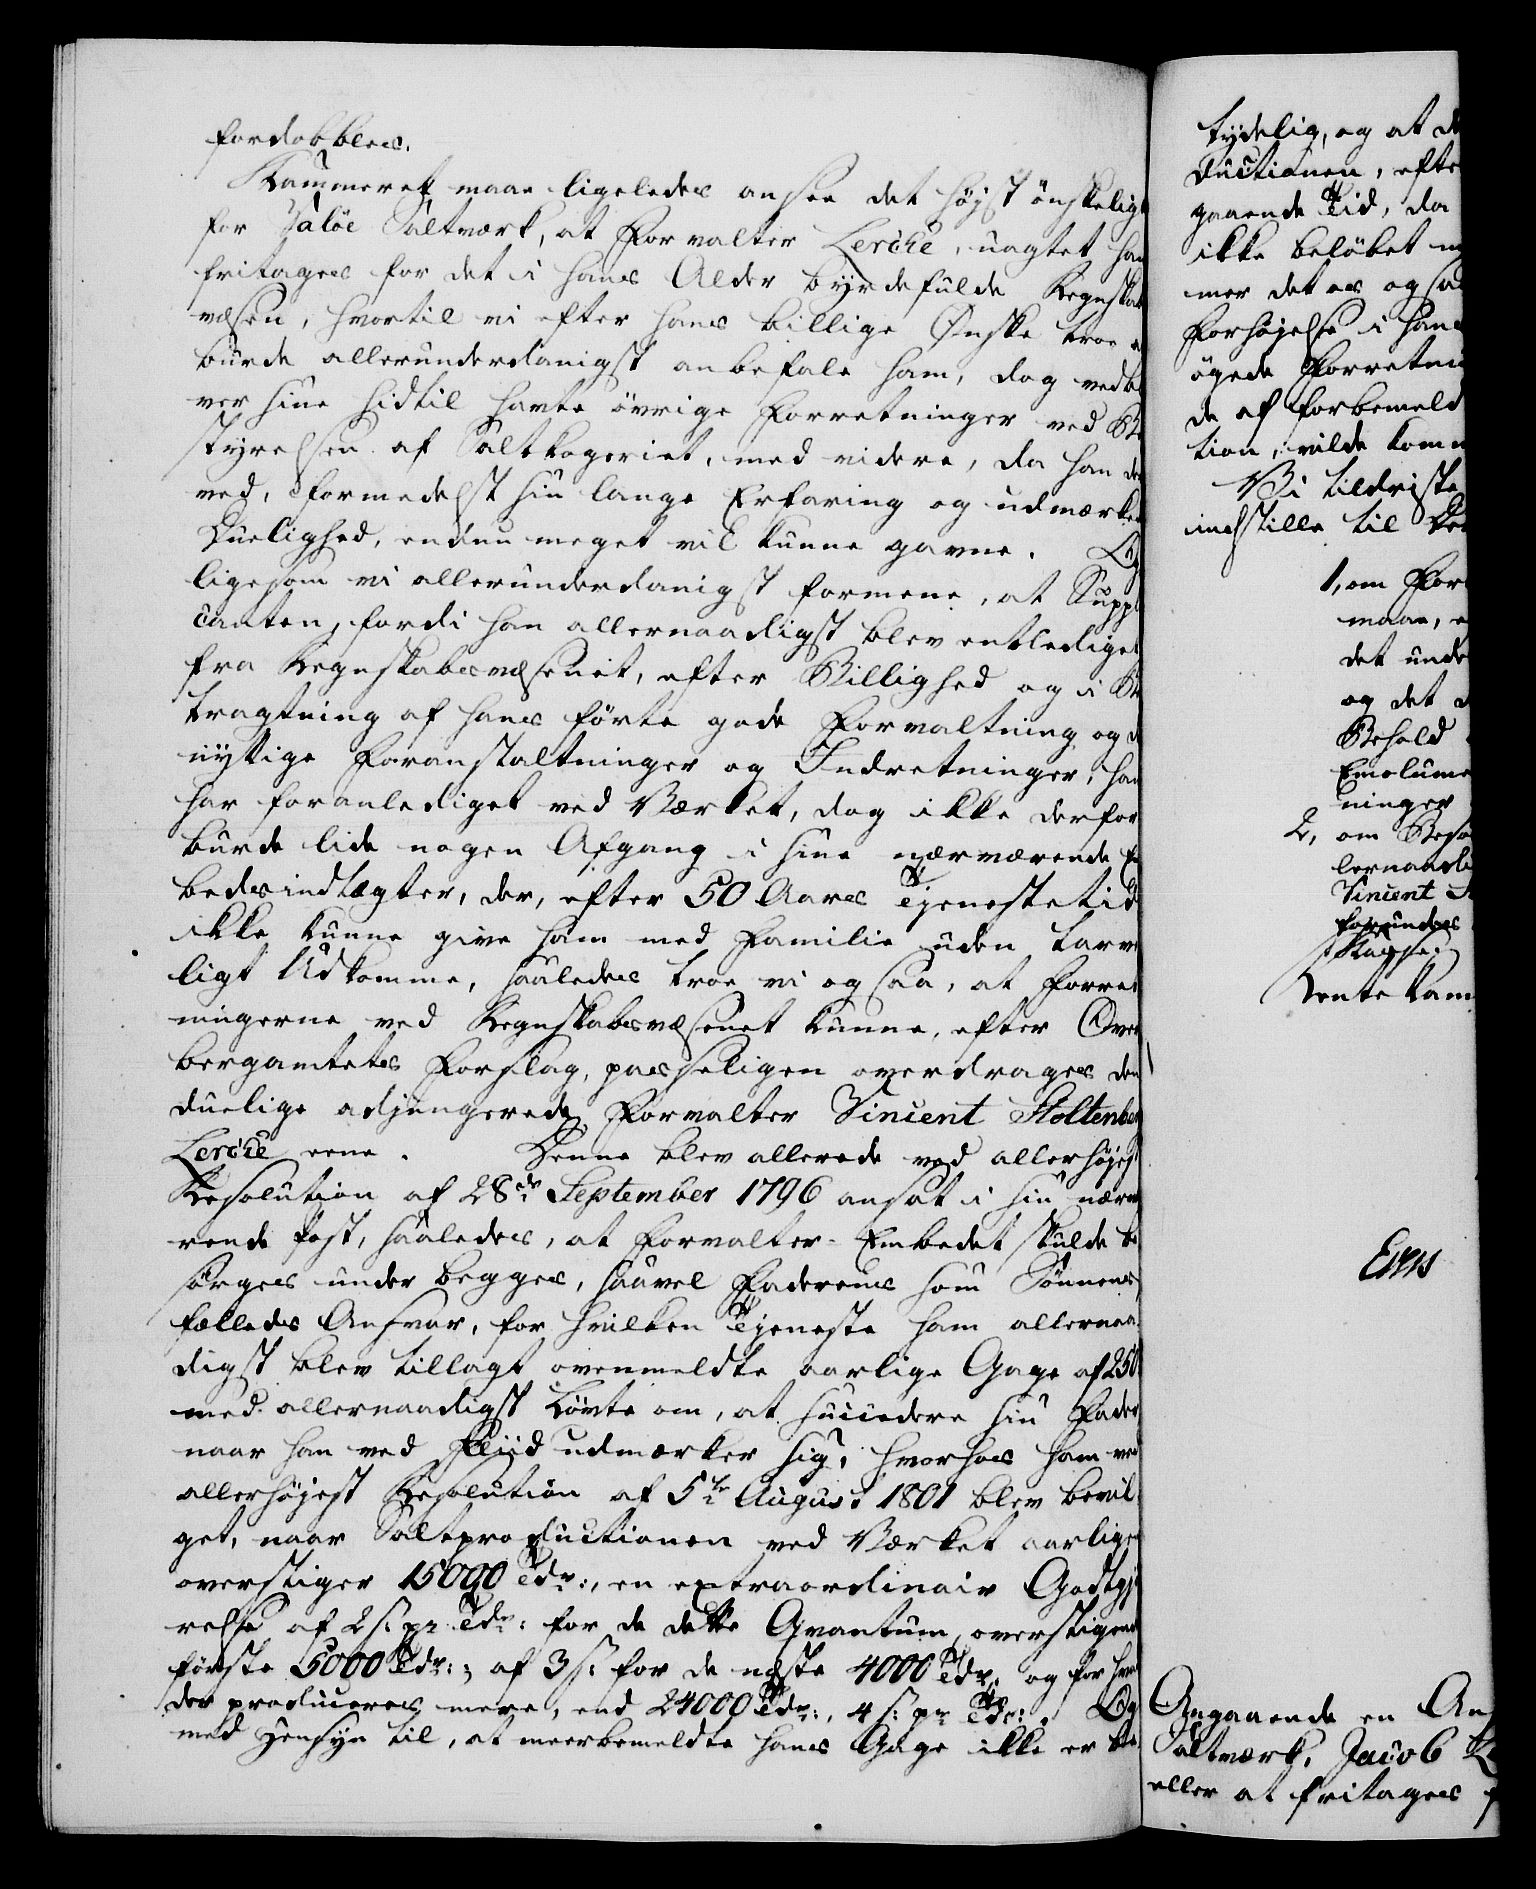 fordobbles.
Kammeret maae ligeledes ansee det højst ønskeligt
for Valöe Saltværk, at Forvalter Lerche, uagtet han
fritages for det i hans Alder byrdefulde Regnskabs
væsen, hvortil vi efter hans billige Ønske troe
burde allerunderdanigst anbefale ham, dog vedbli
ver sine hidtil havte övrige Forretninger ved Be
styrelsen af Saltkogeriet, med videre, da han der
ved, formedelst sin lange Erfaring og udmærkede
Duelighed, endnu meget vil kunne gavne. Og
ligesom vi allerunderdanigst formene, at Suppli
canten, fordi han allernaadigst blev entlediget
fra Regnskabsvæsenet, efter Billighed og i Be
tragtning af hans förte gode Forvaltning og de
nyttige Foranstaltninger og Indretninger, han
har foranlediget ved Værket, dog ikke derfor
burde lide nogen Afgang i sine nærværende Em
bedsindtægter, der, efter 50 Aars Tjenestetid
ikke kunne give ham med Familie uden tarve
ligt Udkomme, saaledes troe vi ogsaa, at Forret
ningerne ved Regnskabsvæsenet kunne, efter Over
bergamtets Forslag, passeligen overdrages den
duelige adjungerede Forvalter Vincent Stoltenberg
Lerche ene. Denne blev allerede ved allerhøjest
Resolution af 28de September 1796 ansat i sin nærvæ
rende Post, saaledes, at Forvalter-Embedet skulde be
sörges under begges, saavel Faderens som Sönnens
fælleds Ansvar, for hvilken Tjeneste ham allernaa
digst blev tillagt ovenmeldte aarlige Gage af 250
med allernaadigst Lövte om, at succedere sin Fader
naar han ved Fliid udmærker sig, hvorhos ham ved
allerhøjest Resolution af 5te August 1801 blev bevil
get, naar Saltproductionen ved Værket aarligen
overstiger 15000 Tdr:, en extraordinair Godtgjö
relse af 2 s. pr Tdr: for de dette Qvantum overstigende
förste 5000 Tdr:; af 3 s: for de næste 4000 Tdr: og for hvad
der produceres mere, end 24000 Tdr:, 4 s: pr Tdr:. Og
med Hensyn til, at meerbemeldte hans Gage ikke er be
tydelig, og at de
ductionen, efte
gaaende Tid, da
ikke belöbet
mer det os ogsaa
Forhøjelse i hans
ögede Forretni
de af forbemeld
tion, vilde komm
Vi tildriste
indstille til
1, om For
maae,
det unde
og det
Behold
Emolume
ninger
2, om
lernaadi
Vincent
forundes
Kasse.
Rentekam
Angaaende en An
Saltværk, Jacob
eller at fritages